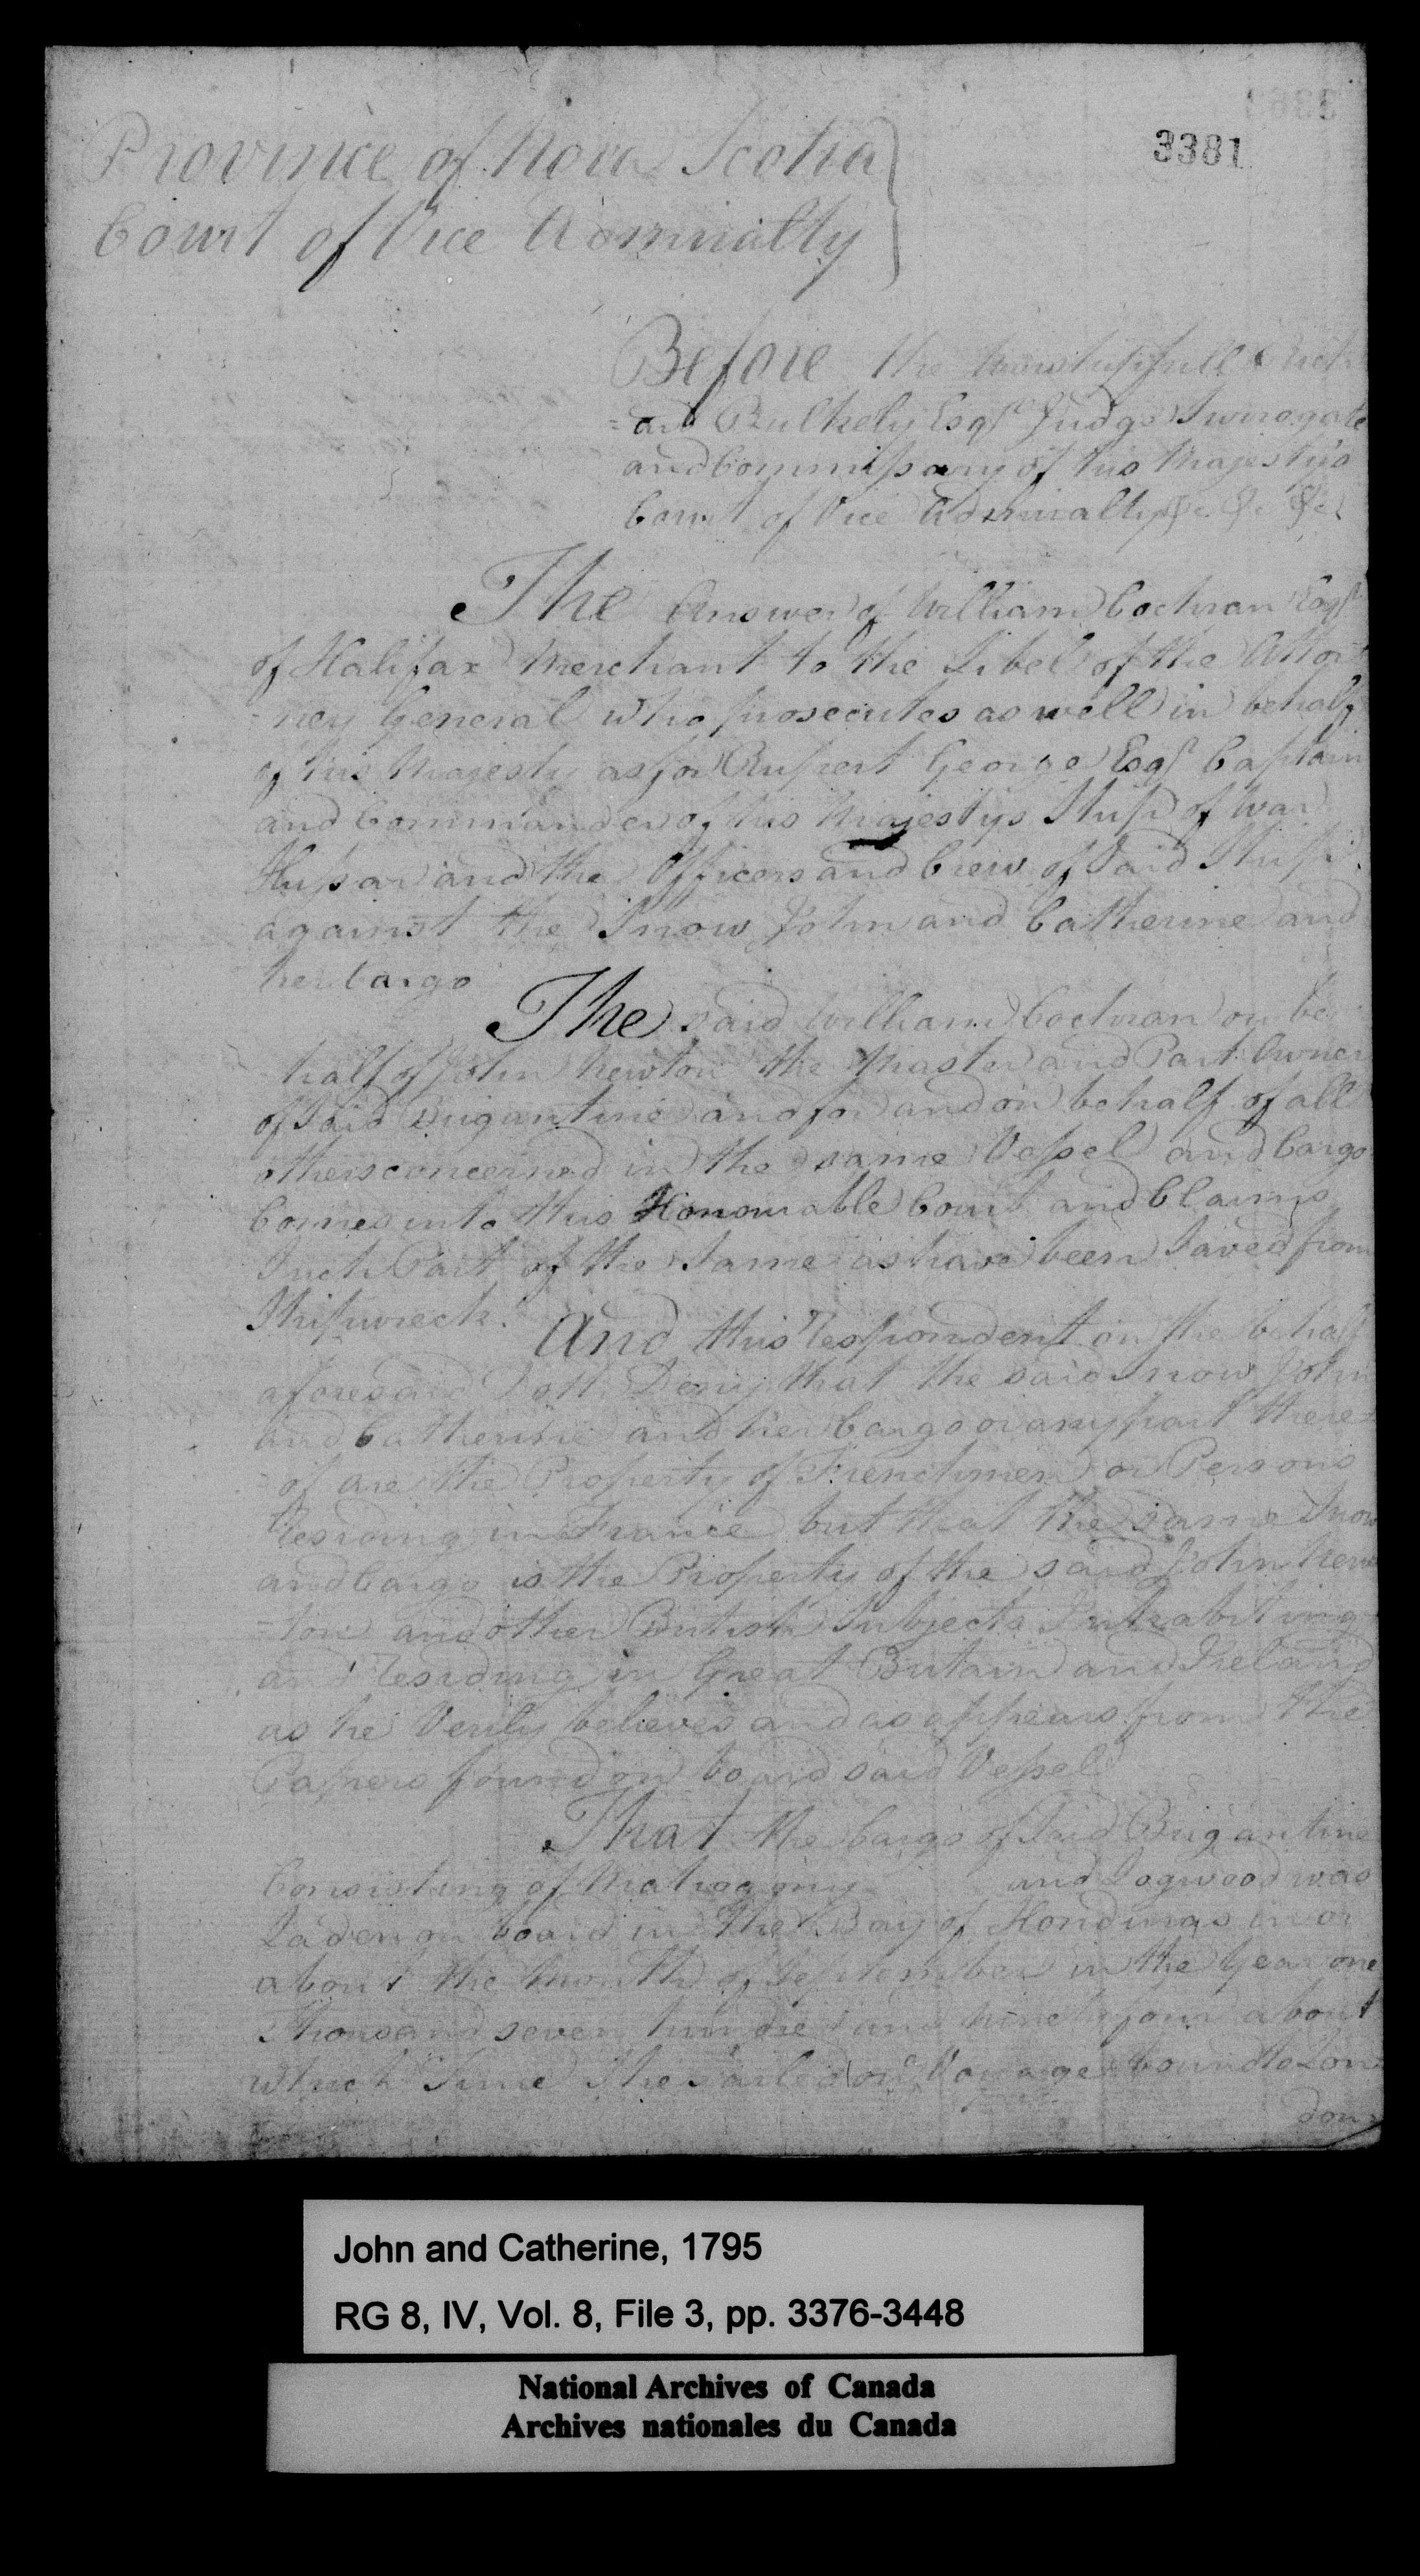 3381
Province of Nova Scotia
Court of Vice Admiralty
Before the Worshipfull Rich
=ard Bulkely Esqr Judge Surrogate
and Commissary of his Majestys
Court of Vice Admiralty &c &c &c
The Answer of William Cochran Esqr
of Halifax Merchant to the Libel of the Attor
=ney General who prosecutes as well in behalf
of his Majesty as for Rupert George Esqr Captain
and Commander of his Majestys Ship of War
Hussar and the Officers and Crew of Said Ship
against the Snow John and Catherine and
her Cargo
The said William Cochran on be
half of John Newton the Master and Part Owner
of Said Brigantine and for and on behalf of all
others concerned in the same Vessel and Cargo
Comes into this Honourable Court and Claims
Such Part of the Same as have been Saved from
Shipwreck.
And this respondent on the behalf
aforesaid Doth Deny that the said Snow John
and Catherine and her Cargo or any part there=
of are the Property of Frenchmen or Persons
residing in France but that the same Snow
and Cargo is the Property of the said John New
=ton and other British Subjects Inhabiting
and residing in Great Britain and Ireland
as he Verily believes and as appears from the
Papers found on board said Vessel
That the Cargo of Said Brigantine
Consisting of Mahogony and Logwood was
Laden on board in the Bay of Honduras in or
about the Month of September in the Year one
Thousand seven hundred and ninety four about
which time She sailed on Voyage bound to Lon
don
John and Catherine, 1795
RG 8, IV, Vol. 8, File 3, pp. 3376-3448
National Archives of Canada
Archives nationales du Canada